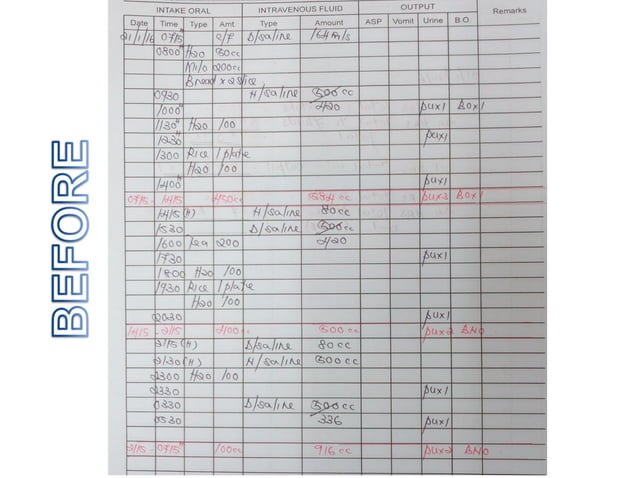 BEFORE
INTAKE ORAL INTRAVENOUS FLUID OUTPUT Remarks
Date Time Type Amt Type Amount ASP Vomit Urine B.O.
21/1/16 0715H c/f D/saline 164 mls
0800H H2O 50cc
Milo 200cc
Bread x 2 slice
0930 N/saline 500cc
1000H 420 pux1 BOx1
1130H H2O 100
1230H pux1
1300 Rice 1 plate
H2O 100
1400H pux1
0715 - 1415 450cc 584cc pux3 BOx1
1415(H) N/saline 80cc
1530 D/saline 500cc
1600 Tea 200 420
1730 pux1
1800 H2O 100
1930 Rice 1 plate
H2O 100
2030 pux1
1415 - 2115 400cc 500cc pux2 BNO
2115(H) D/saline 80cc
2130(H) N/saline 500cc
2300 H2O 100
2330 pux1
0330 D/saline 500cc
0530 336 pux1
2115 - 0715H 100cc 916cc pux2 BNO